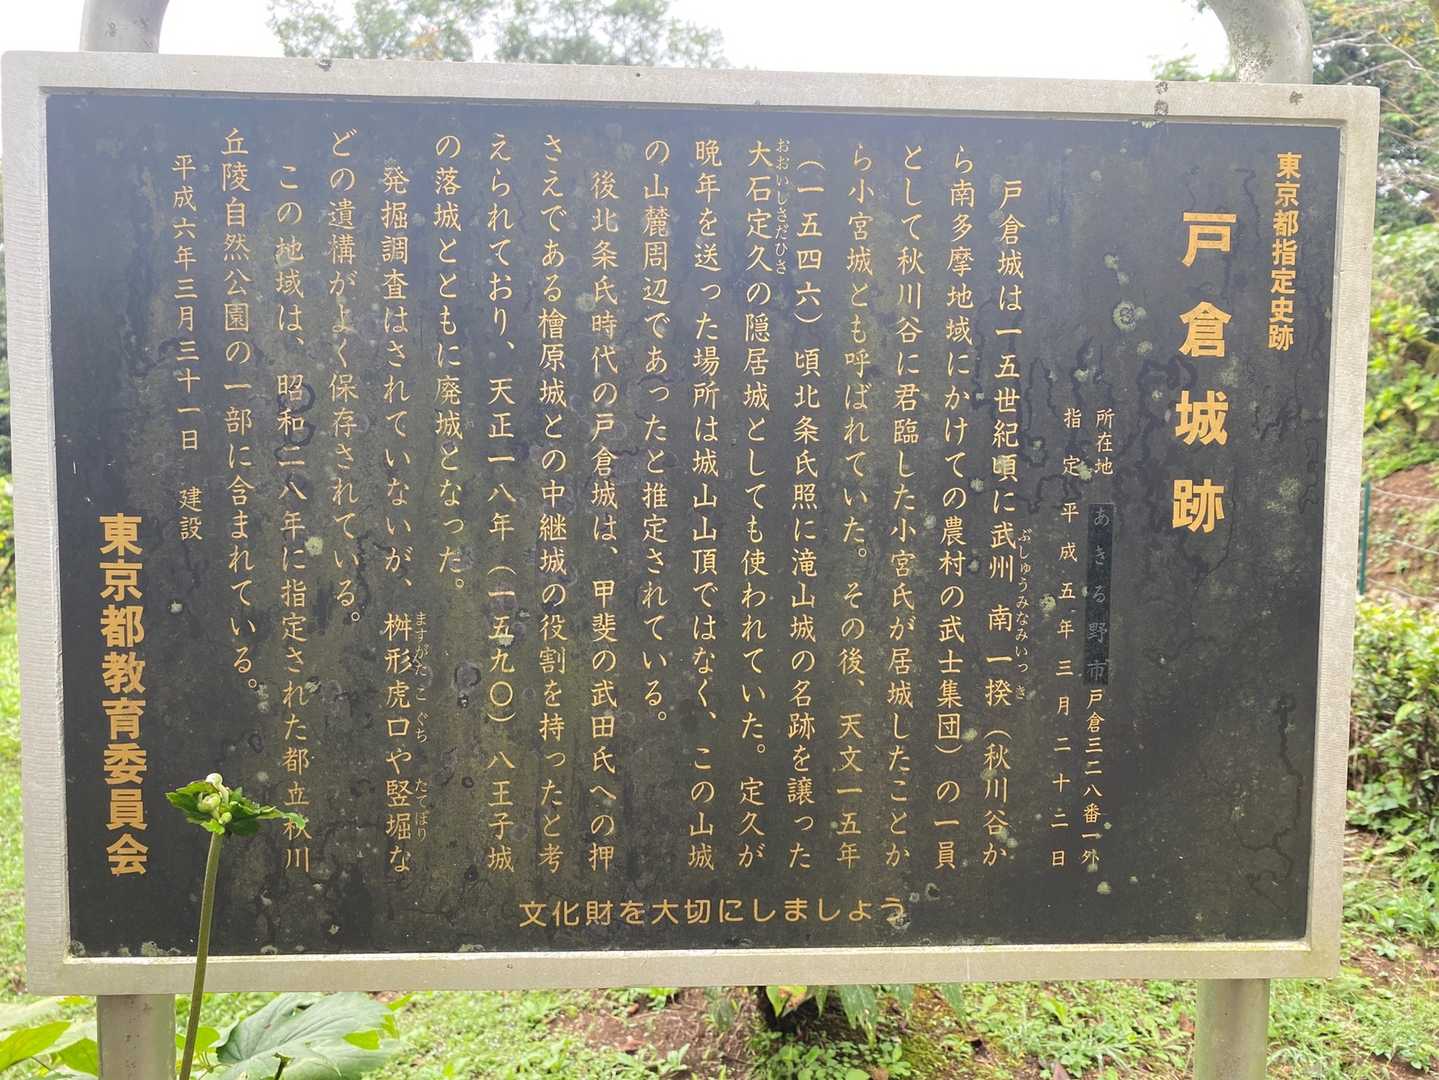 東京都指定史跡
戸倉城跡
所在地　あきる野市戸倉三二八番一外
指定　平成五年三月二十二日
戸倉城は一五世紀頃に武州南一揆（秋川谷か
ぶしゅうみなみいっき
ら南多摩地域にかけての農村の武士集団）の一員
として秋川谷に君臨した小宮氏が居城したことか
ら小宮城とも呼ばれていた。その後、天文一五年
（一五四六）頃北条氏照に滝山城の名跡を譲った
大石定久の隠居城としても使われていた。定久が
おおいしさだひさ
晩年を送った場所は城山山頂ではなく、この山城
の山麓周辺であったと推定されている。
後北条氏時代の戸倉城は、甲斐の武田氏への押
さえである檜原城との中継城の役割を持ったと考
えられており、天正一八年（一五九〇）八王子城
の落城とともに廃城となった。
発掘調査はされていないが、桝形虎口や竪堀な
ますがたこぐち
たてぼり
どの遺構がよく保存されている。
この地域は、昭和二八年に指定された都立秋川
丘陵自然公園の一部に含まれている。
平成六年三月三十一日　建設
東京都教育委員会
文化財を大切にしましよう